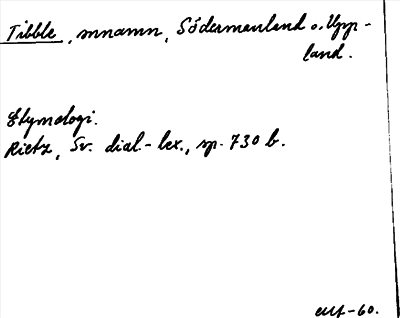 Tibble, mnamn, Södermanland o. Upp-
land.
Etymologi.
Rietz, Sv. dial.-lex., sp. 730 b.